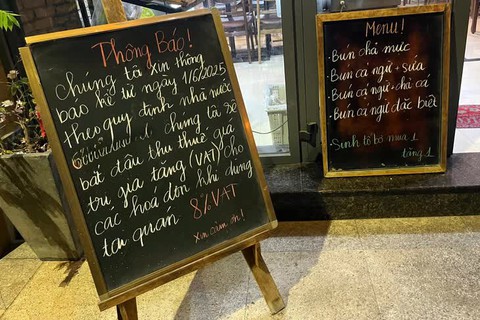 Thông Báo!
Chúng tôi xin thông
báo kể từ ngày 1/6/2025
theo quy định nhà nước
chúng tôi sẽ
bắt đầu thu thuế giá
trị gia tăng (VAT) cho
các hoá đơn khi dùng
tại quán 8% VAT
Xin cảm ơn!
Menu!
- Bún chả mực
- Bún cá ngừ + sứa
- Bún cá ngừ + chả cá
- Bún cá ngừ đặc biệt
- Sinh tố bơ mua 1
tặng 1